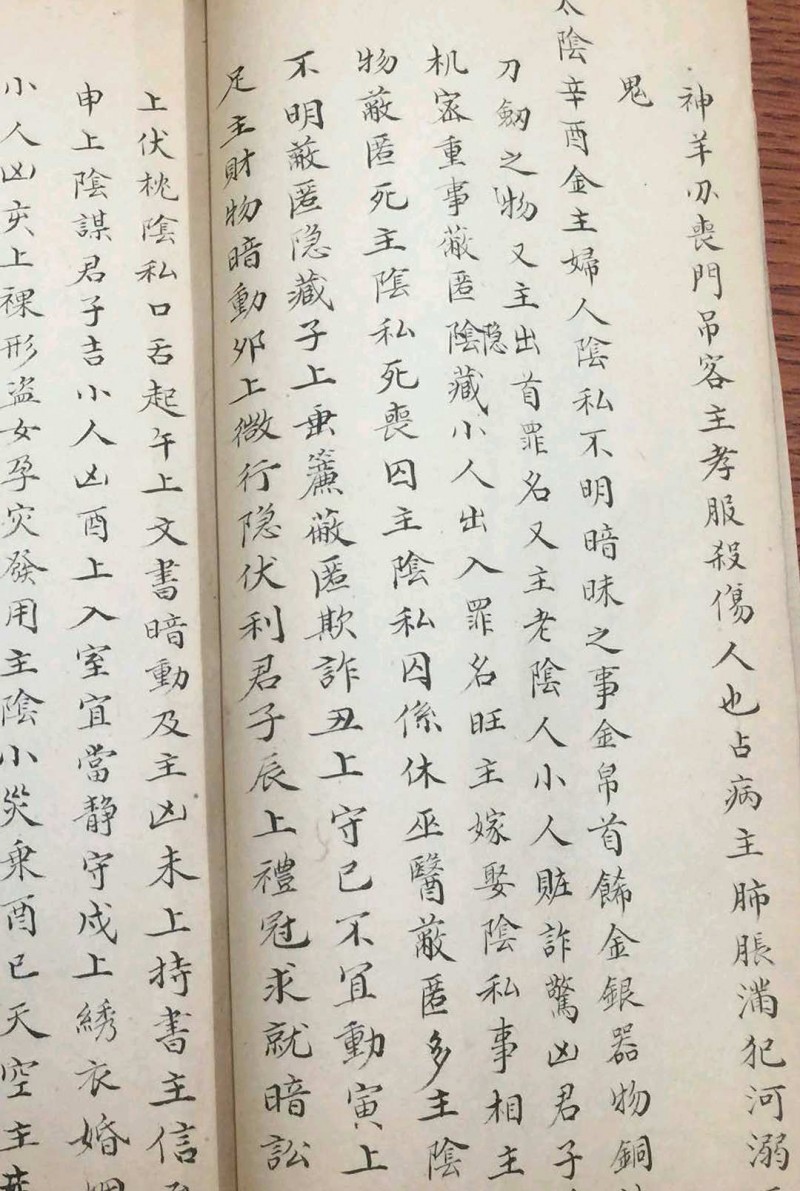 神羊刃喪門吊客主孝服殺傷人也占病主肺脹满犯河溺
鬼
太陰辛酉金主婦人陰私不明暗昧之事金帛首餙金銀器物銅
刀劔之物又主出首罪名又主老陰人小人賍詐驚凶君子
机宻重事蔽匿陰隐藏小人出入罪名旺主嫁娶陰私事相主
物蔽匿死主陰私死喪囚主陰私囚係休巫醫蔽匿多主陰
不明蔽匿隐藏子上垂簾蔽匿欺詐丑上守己不宜動寅上
足主財物暗動夘上微行隐伏利君子辰上禮冠求就暗訟
上伏枕陰私口舌起午上文書暗動及主凶未上持書主信
申上陰謀君子吉小人凶酉上入室宜當静守戌上綉衣婚姻
小人凶亥上裸形盗女孕灾發用主陰小災乘酉已天空主